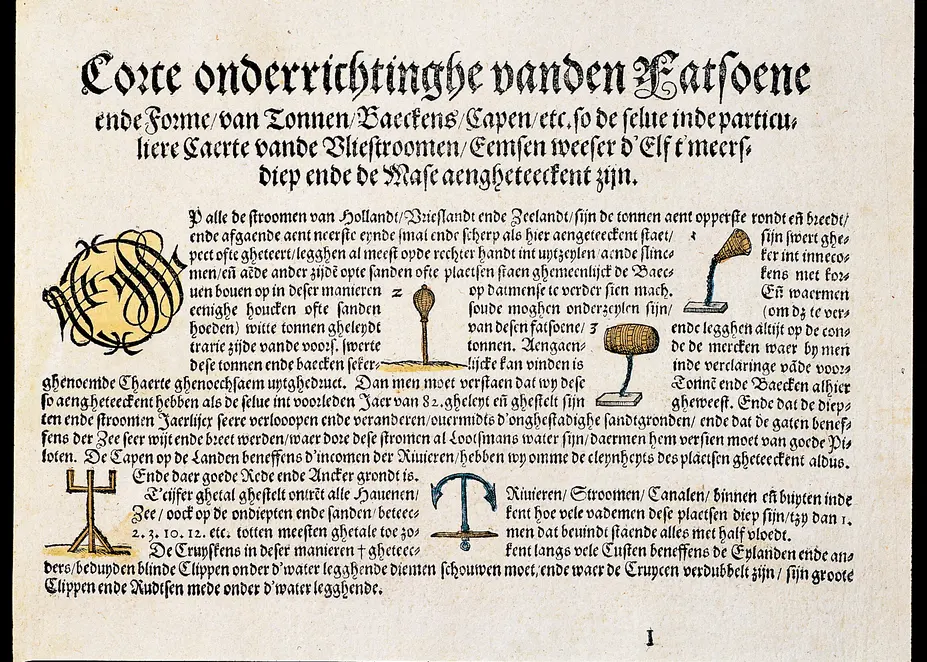 Corte onderrichtinghe vanden Fatſoene
ende Forme/van Tonnen/Baeckens/Capen/etc.ſo de ſelue inde particu-
liere Caerte vande Vlieſtroomen/Eemſen weeſer d'Elf t'meerſ-
diep ende de Maſe aengheteeckent zijn.
OP alle de ſtroomen van Hollandt/Vrieſlandt ende Zeelandt/ſijn de tonnen aent opperſte rondt eñ breedt/
ende afgaende aent neerſte eynde ſmal ende ſcherp als hier aengeteeckent ſtaet/ 1 ſijn ſwert ghe-
pect ofte gheteert/legghen al meeſt opde rechter handt int uytzeylen/aende ſlinc- ker int inneco-
men/eñ aēde ander zijdē opte ſanden ofte plaetſen ſtaen ghemeenlijck de Baec- kens met kor-
uen bouen op in deſer manieren 2 op datmenſe te verder ſien mach. Eñ waermen
eenighe houcken ofte ſanden ſoude moghen onderzeylen ſijn/ (om dz te ver-
hoeden) witte tonnen gheleydt van deſen fatſoene/ 3 ende legghen altijt op de con-
trarie zijde vande voorſ. ſwerte tonnen. Aengaen- de de mercken waer by men
deſe tonnen ende baecken ſeker- lijcke kan vinden is inde verclaringe vāde voor-
ghenoemde Chaerte ghenoechſaem uytghedruct. Dan men moet verſtaen dat wy deſe Tonnē ende Baecken alhier
ſo aengheteeckent hebben als de ſelue int voorleden Jaer van 82. gheleyt eñ gheſtelt ſijn gheweeſt. Ende dat de diep-
ten ende ſtroomen Jaerlijcx ſeere verlooopen ende veranderen/ouermidts d'onghestadighe ſandtgronden/ ende dat de gaten benef-
fens der Zee ſeer wijt ende breet werden/waer dore deſe ſtromen al Lootſmans water ſijn/daermen hem verſien moet van goede Pi-
loten. De Capen op de Landen beneffens d'incomen der Riuieren/hebben wy omme de cleynheyts des plaetſen gheteeckent aldus.
Ende daer goede Rede ende Ancker grondt is.
T'cijfer ghetal gheſtelt ontrēt alle Hauenen/ Riuieren/ Stroomen/ Canalen/ binnen eñ buyten inde
Zee/ oock op de ondiepten ende ſanden/ beteec- kent hoe vele vademen deſe plaetſen diep ſijn/tzy dan 1.
2. 3. 10. 12. etc. totten meeſten ghetale toe zo- men dat beuindt ſtaende alles met half vloedt.
De Cruyſkens in deſer manieren † gheteec- kent langs vele Cuſten beneffens de Eylanden ende an-
ders/beduyden blinde Clippen onder d'water legghende diemen ſchouwen moet/ende waer de Cruycen verdubbelt zijn/ ſijn groote
Clippen ende Rudtſen mede onder d'water legghende.
I